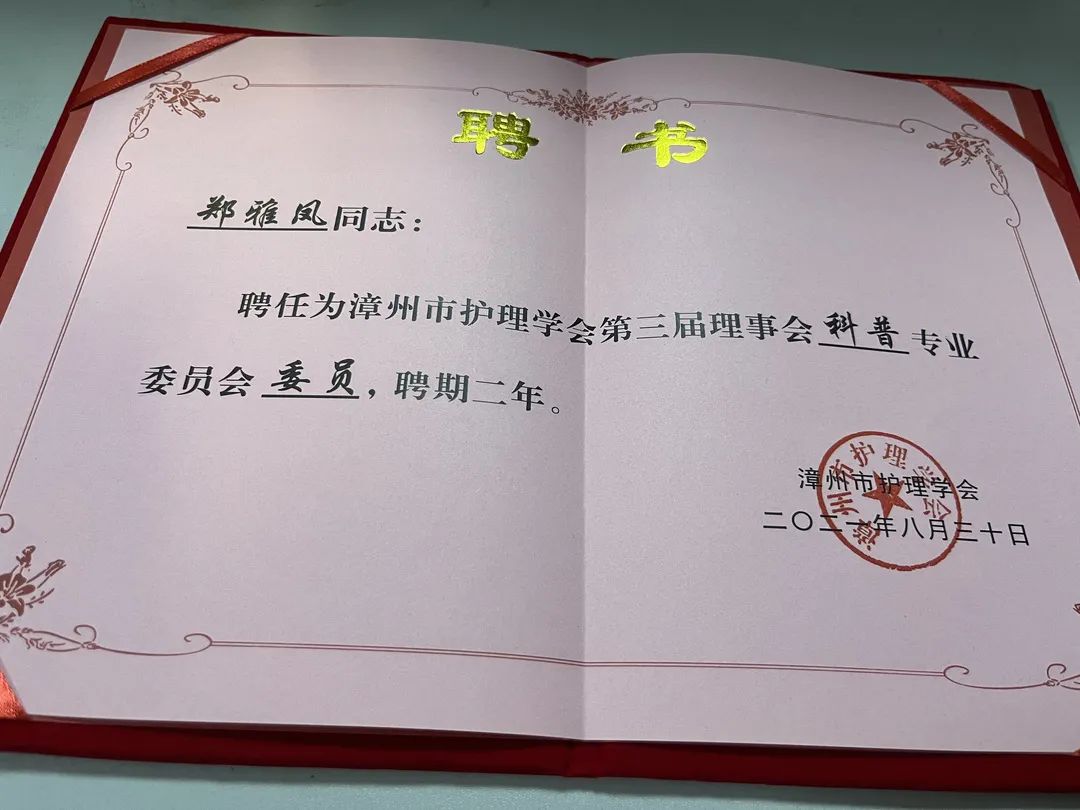 聘 书
郑雅凤同志：
聘任为漳州市护理学会第三届理事会科普专业
委员会委员，聘期二年。
漳州市护理学会
二〇二一年八月三十日
漳州市护理学会